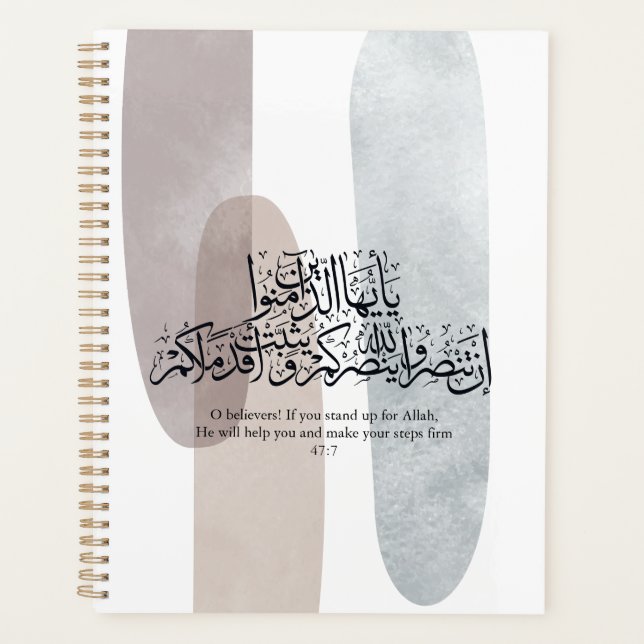 يَاأَيُّهَا الَّذِينَ آمَنُوا
إِنْ تَنْصُرُوا اللَّهَ يَنْصُرْكُمْ وَيُثَبِّتْ أَقْدَامَكُمْ
O believers! If you stand up for Allah,
He will help you and make your steps firm
47:7